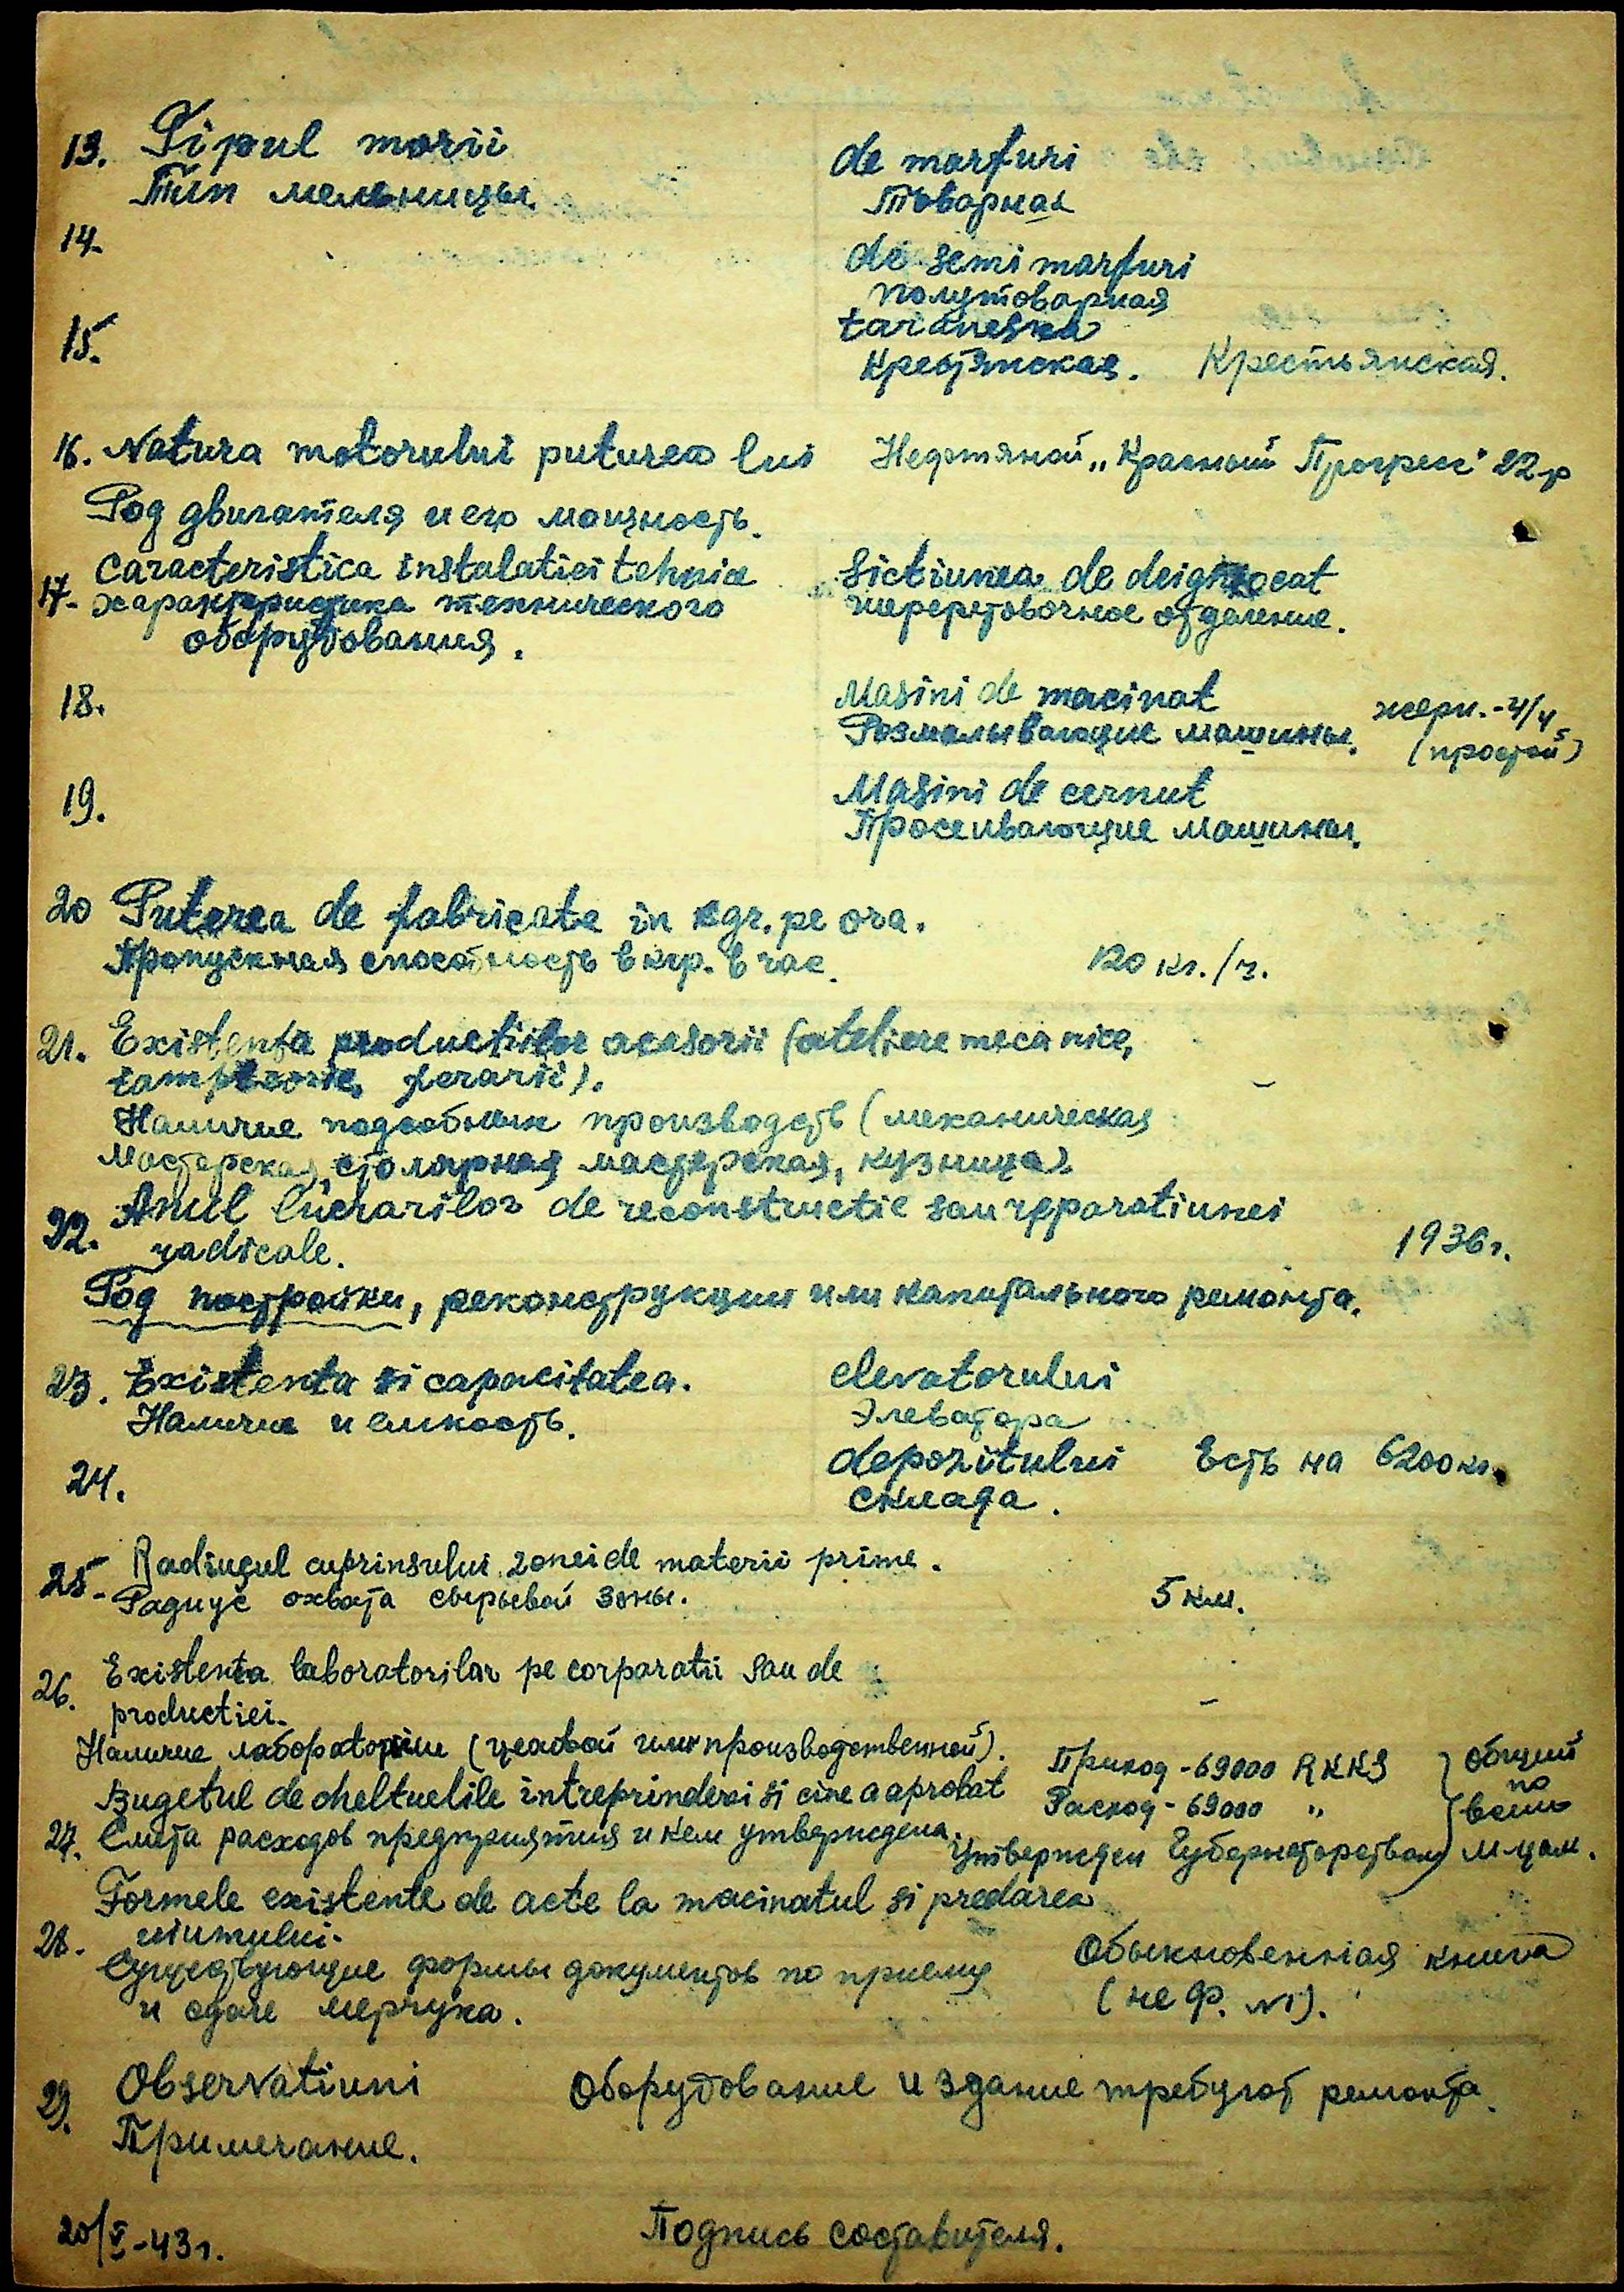 13. Tipul morii
Тип мельницы.
de marfuri
Товарная
14.
de semi marfuri
полутоварная
15.
taraneska
Крестянская. Крестьянская.
16. Natura motorului puturea lui
Род двигателя и его мощность.
Нефтяной „Красный Прогресс" 22
17. Caracteristica instalatiei tehnice
характеристика технического
оборудования.
Sictiunea de
отделение.
18.
Masini de macinat
Размалывающие машины.
жерн. - 4/4
(простой)
19.
Masini de cernut
Просеивающие машины.
20 Puterea de fabricate in kgr. pe ora.
Пропускная способность в кгр. в час.
120 кг./ч.
21. Existenta productiilor acesorii (ateliere mecanice,
ferarii).
-
Наличие подсобных производств (механическая
мастерская, столярная мастерская, кузница)
22. Anul lucrarilor de reconstructie sau reparatiunei
radicale.
1936 г.
Год постройки, реконструкции или капитального ремонта.
23. Existenta si capacitatea.
Наличие и емкость.
elevatorului
Элеватора
24.
depozitului
склада.
Есть на 6200 кг.
25. Radiusul cuprinsului zonei de materii prime.
Радиус охвата сырьевой зоны.
5 км.
26. Existenta laboratorilor pe corporatii sau de
productiei.
-
Наличие лаборатории (цеховой или производственной).
27. Bugetul de cheltuelile intreprinderi si cine a aprobat
Смета расходов предприятия и кем утверждена.
Приход - 69000 RKKS
Расход - 69000 "
Утвержден Губернаторством
общий
по
всем
м-цам.
28. Formele existente de acte la macinatul si predarea
uiumului.
Существующие формы документов по приему
и сдаче мерчука.
Обыкновенная книга
(не ф. №1).
29. Observatiuni
Примечание.
Оборудование и здание требуют ремонта.
20/V-43 г.
Подпись составителя.